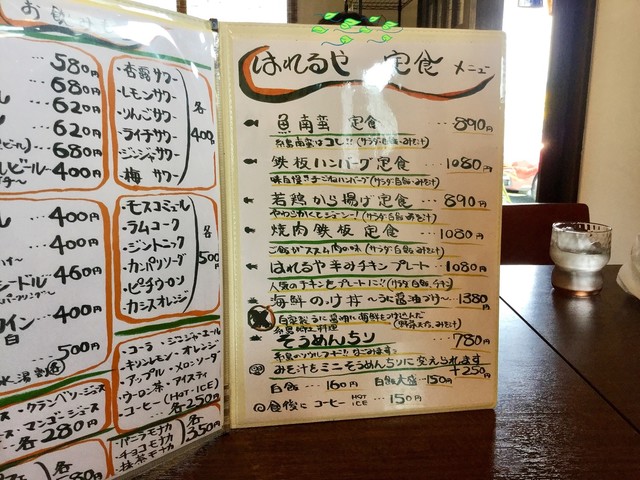 580円
680円
620円
620円
680円
400円
400円
400円
460円
500円
・杏露サワー
・レモンサワー
・りんごサワー
・ライチサワー
・ジンジャサワー
・梅 サワー
各400円
・モスコミュール
・ラムコーク
・ジントニック
・カンパリソーダ
・ピーチウーロン
・カシスオレンジ
各500円
・コーラ ・ジンジャーエール
・キリンレモン ・オレンジ
・アップル ・メロンソーダ
・ウーロン茶 ・アイスティ
・コーヒー (HOT・ICE) 各250円
・クランベリージュース
・マンゴージュース
各280円
・バニラモナカ
・チョコモナカ
・抹茶モナカ
各350円
はれるや 定食 メニュー
魚南蛮 定食 ・・・890円
糸島南蛮はコレ!! (サラダ・白飯・みそ汁)
鉄板ハンバーグ定食 ・・・1080円
(サラダ・白飯・みそ汁)
若鶏から揚げ定食 ・・・890円
やわらかくてジューシー! (サラダ・白飯・みそ汁)
焼肉鉄板定食 ・・・1080円
ご飯がススム肉の味 (サラダ・白飯・みそ汁)
はれるやキみチキンプレート ・・・1080円
人気のチキンをプレートに!! (サラダ・白飯・チキン)
海鮮のけ丼 〜うに醤油づけ〜 ・・・1380円
自家製うに醤油に海鮮をつけ込んだ
糸島郷土料理
そうめんちり ・・・780円
みそ汁をミニそうめんちりに変えられます
+250円
白飯・・・160円 白飯大盛・・・150円
食後に コーヒー HOT ICE ・・・150円